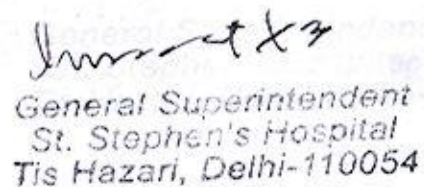 General Superintendent
St. Stephen's Hospital
Tis Hazari, Delhi-110054